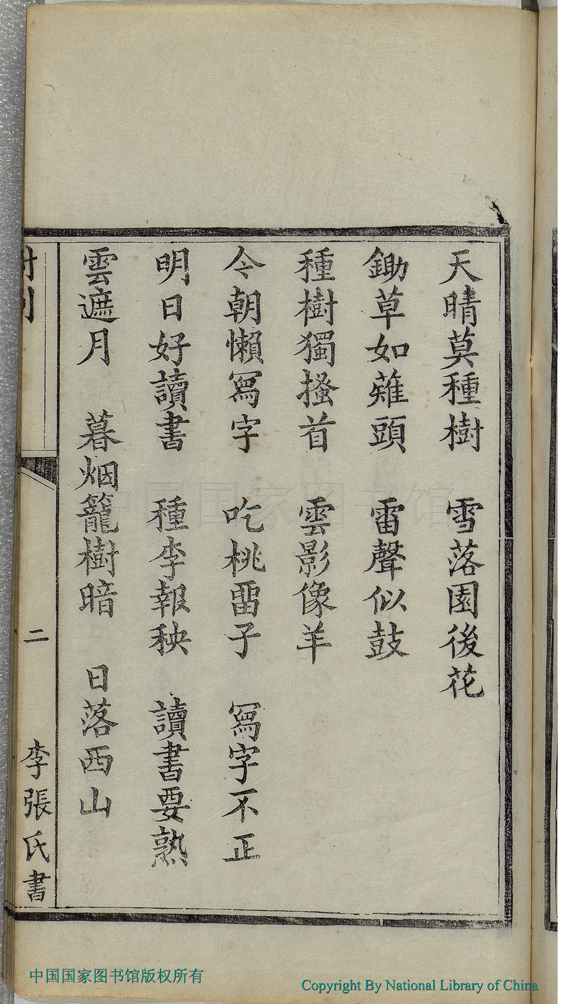 天晴莫種樹　雪落園後花
鋤草如薙頭　雷聲似鼓
種樹獨搔首　雲影像羊
今朝懶冩字　吃桃畱子　冩字不正
明日好讀書　種李報秧　讀書要熟
雲遮月　暮烟籠樹暗　日落西山
二
李張氏書
中国国家图书馆
中国国家图书馆版权所有
Copyright By National Library of China